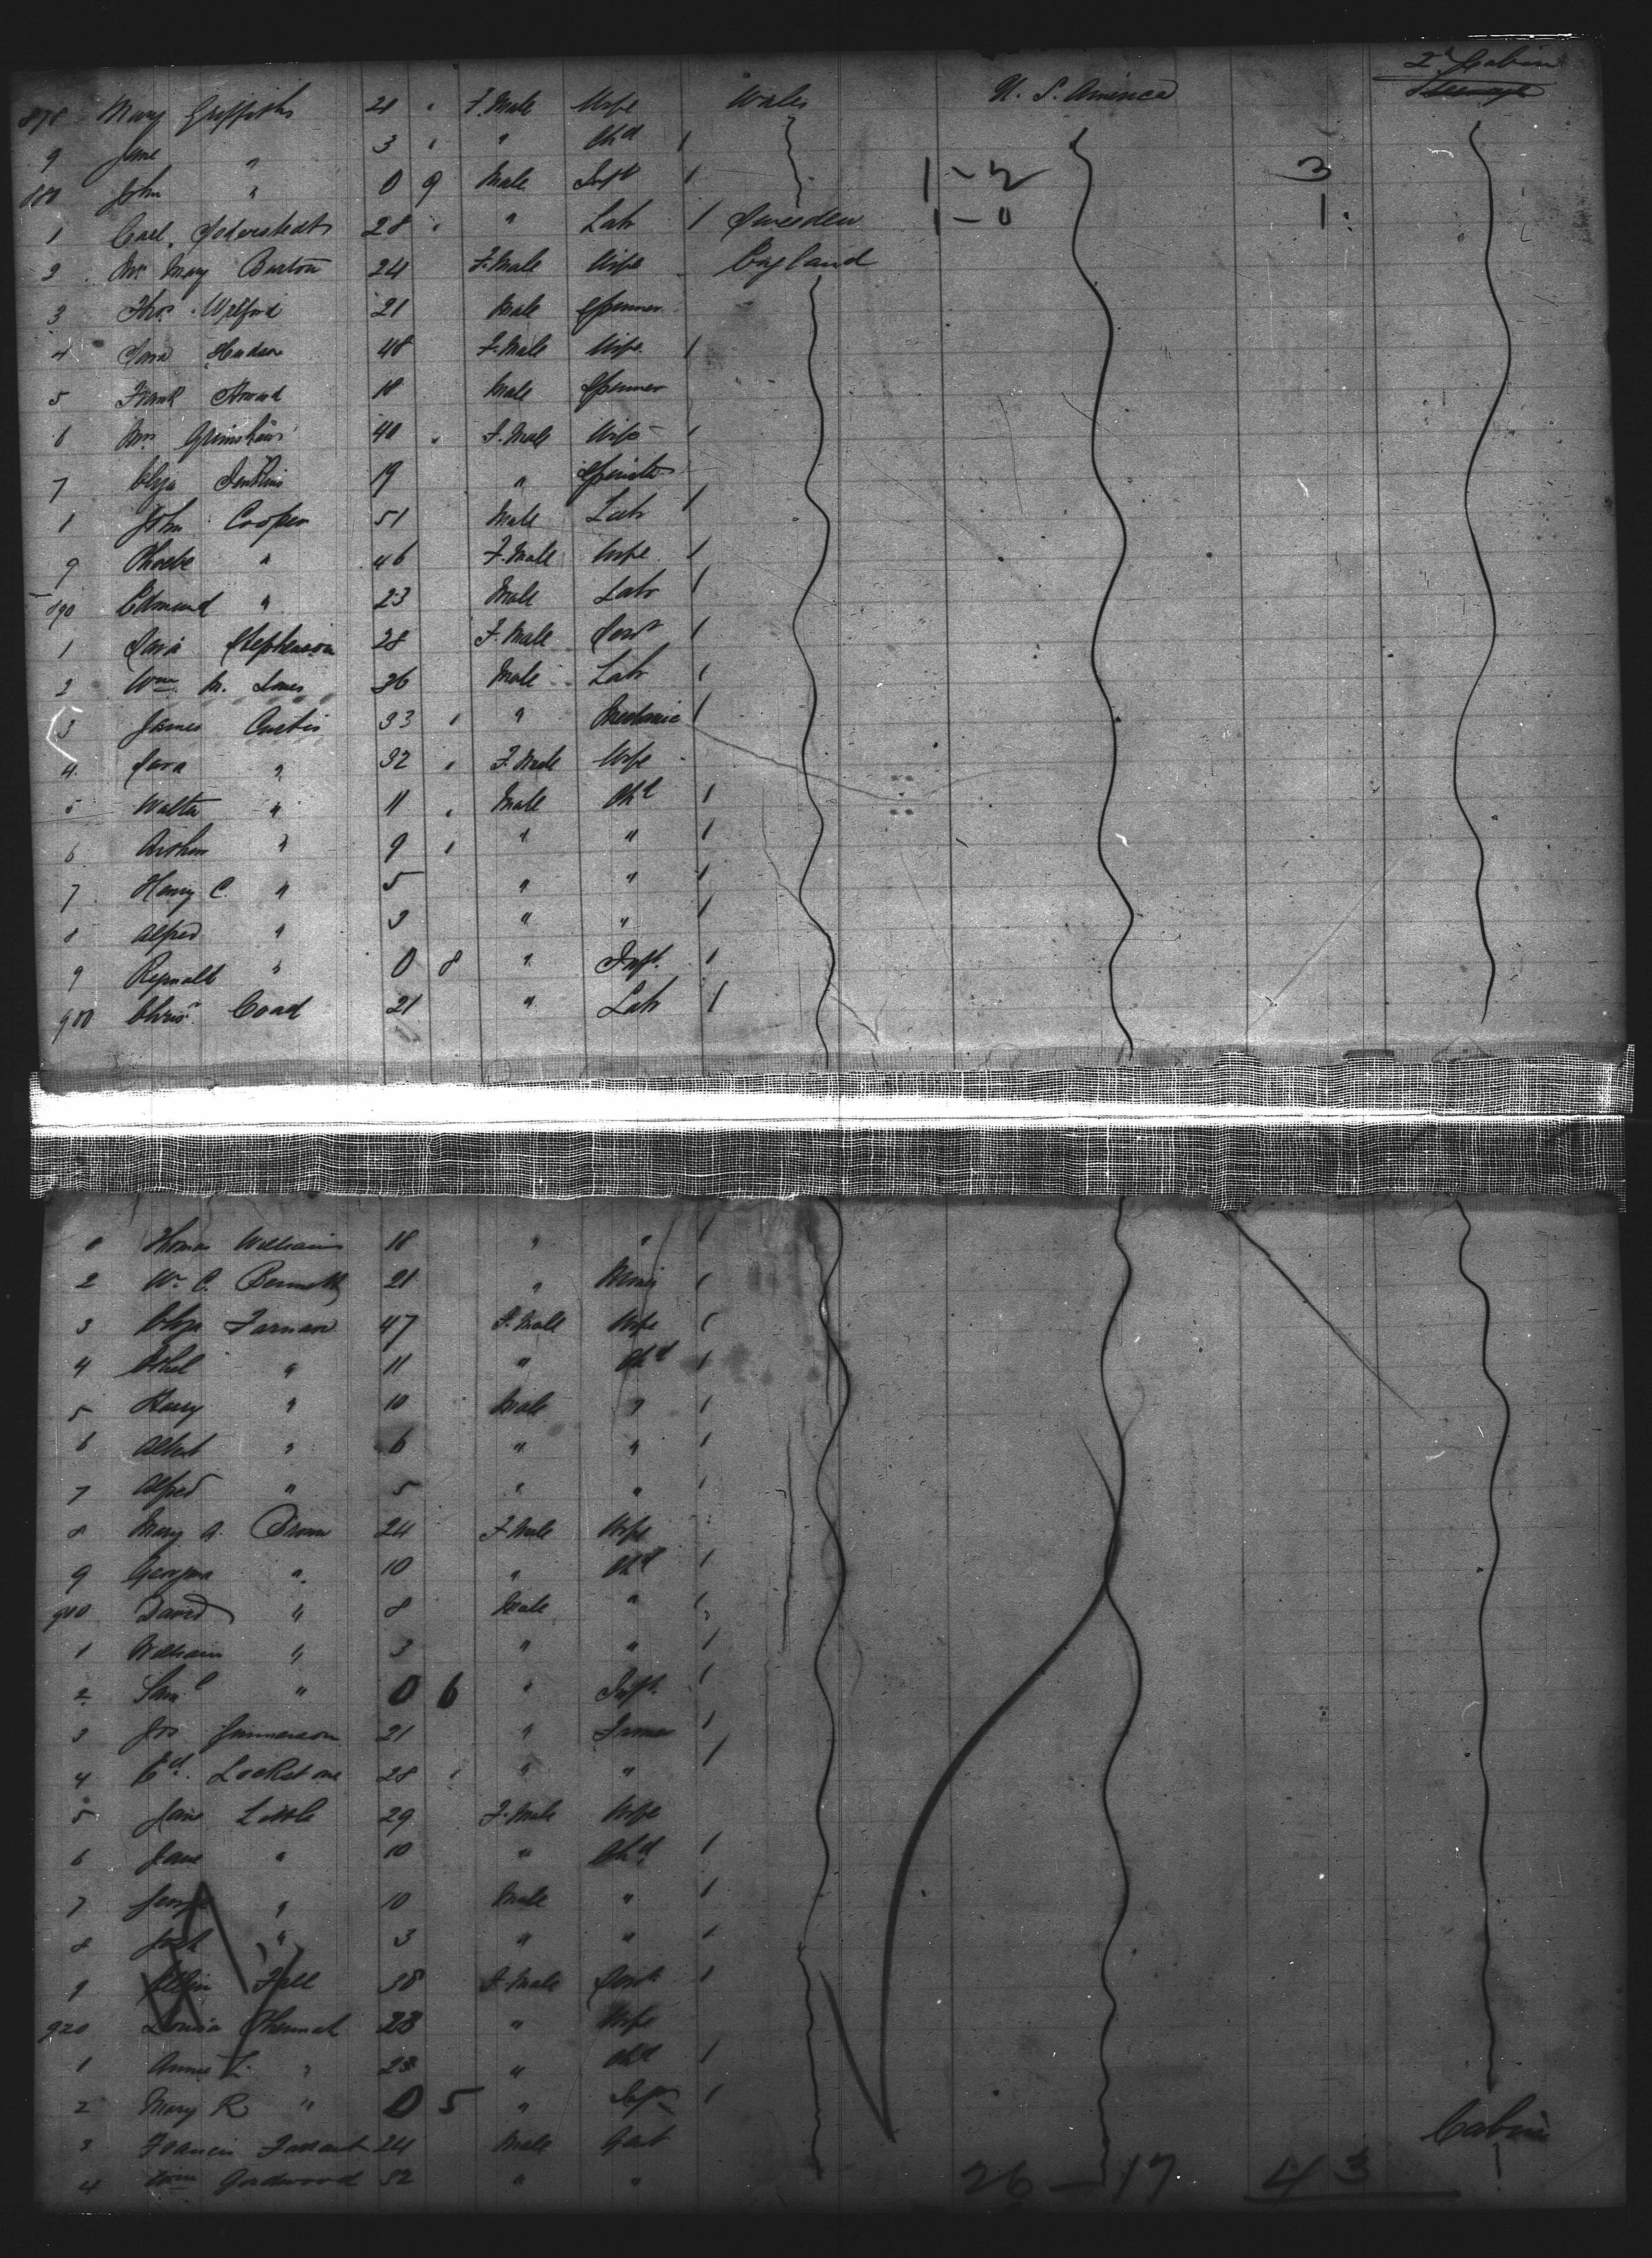 2d Cabin
Steerage
878 Mary Griffiths 21 " F.Male Wife Wales U. S. America
9 Jane " 3 " " Chd /
880 John " 0 9 Male Inft / 1-2 3
1 Carl Soderstedt 28 " " Labr / Sweden 1-0 1
2 Mrs Mary Burton 24 F.Male Wife England
3 Thos. Wilford 21 Male Spinner
4 Sara Hudson 48 F.Male Wife /
5 Frank 18 Male Spinner
6 Mrs Grimshaw 40 " F.Male Wife /
7 Eliza Jenkins 19 " Spinster
8 John Cooper 51 Male Labr /
9 Phoebe " 46 F.Male Wife /
890 Edmund " 23 Male Labr /
1 Sara Stephenson 28 F.Male Servt /
2 Wm M. Jones 36 Male Labr /
3 James Curtis 33 " " Mechanic /
4 Sara " 32 " F.Male Wife
5 Walter " 11 " Male Chd /
6 Arthur " 9 " " " /
7 Harry C. " 5 " " /
8 Alfred " 3 " " /
9 Reginald " 0 8 " Inft. /
900 Chris. Coad 21 " Labr /
1 Thomas Williams 18 " " /
2 Wm C. Bennett 21 " Miner /
3 Eliza Farnan 47 F.Male Wife /
4 Ethel " 11 " Chd /
5 Harry " 10 Male " /
6 Albert " 6 " " /
7 Alfred " 5 " " /
8 Mary A. Brown 24 F.Male Wife
9 Georgina " 10 " Chd /
910 David " 8 Male " /
1 William " 3 " " /
2 Saml " 0 6 " Inft. /
3 Jos 21 " Farmer /
4 Ed. Lockstone 28 " " " /
5 Jane Little 29 F.Male Wife
6 Jane " 10 " Chd /
7 George " 10 Male " /
8 Josh " 3 " " /
9 Fell 38 F.Male Servt /
920 Louisa 28 " Wife
1 Annie L. " 23 " Chd /
2 Mary R " 0 5 " Inft /
3 Francis Farrant 24 Male Gent Cabin
4 Wm Gordwood 52 " " 26-17 43